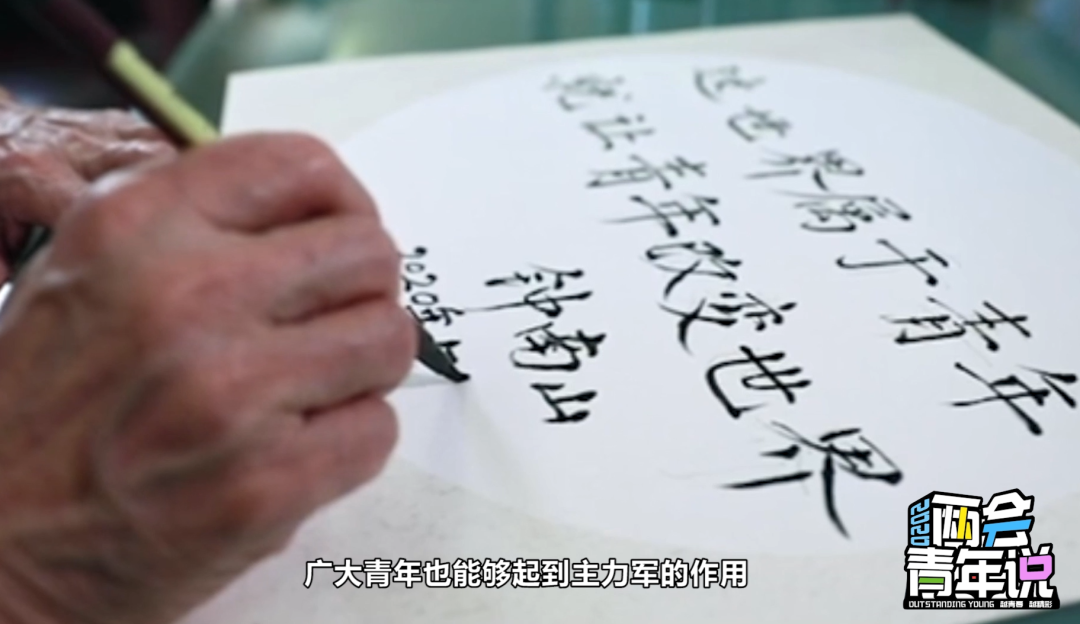 这世界属于青年
就让青年改变世界
钟南山
2020年
广大青年也能够起到主力军的作用
2020
两会
青年说
OUTSTANDING YOUNG 越青春 越精彩